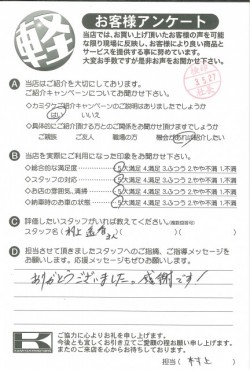 軽
お客様アンケート
当店では、お買い上げ頂いたお客様の声を可能
な限り現場に反映し、お客様により良い商品と
サービスを提供する事に努めています。
大変お手数ですが是非お声をお聞かせ下さい。
A 当店はご紹介を大切にしております。
ご紹介キャンペーンについてお聞かせ下さい。
◇カミタケご紹介キャンペーンのご説明はありましたでしょうか
はい いいえ
◇具体的にご紹介頂ける方とのご関係をお聞かせ頂けますでしょうか
ご親族 ご友人 職場の方 機会があれば紹介したい
B 当店を実際にご利用になった印象をお聞かせ下さい。
◇総合的な満足度 5.大満足 4.満足 3.ふつう 2.やや不満 1.不満
◇スタッフの対応 5.大満足 4.満足 3.ふつう 2.やや不満 1.不満
◇お店の雰囲気、清掃 5.大満足 4.満足 3.ふつう 2.やや不満 1.不満
◇納車時のお車の状態 5.大満足 4.満足 3.ふつう 2.やや不満 1.不満
C 評価したいスタッフがいれば教えてください。(複数回答可)
スタッフ名( 村上 さん )
D 担当させて頂きましたスタッフへのご指摘、ご指導メッセージを
お願いします。応援メッセージもぜひお願いします。
ありがとうございました。感謝です!
K
ご協力に心よりお礼を申し上げます。
今後とも宜しくお引き立てご愛顧の程お願い申し上げます。
またのご来店を心からお待ちしております。
担当( 村上 )